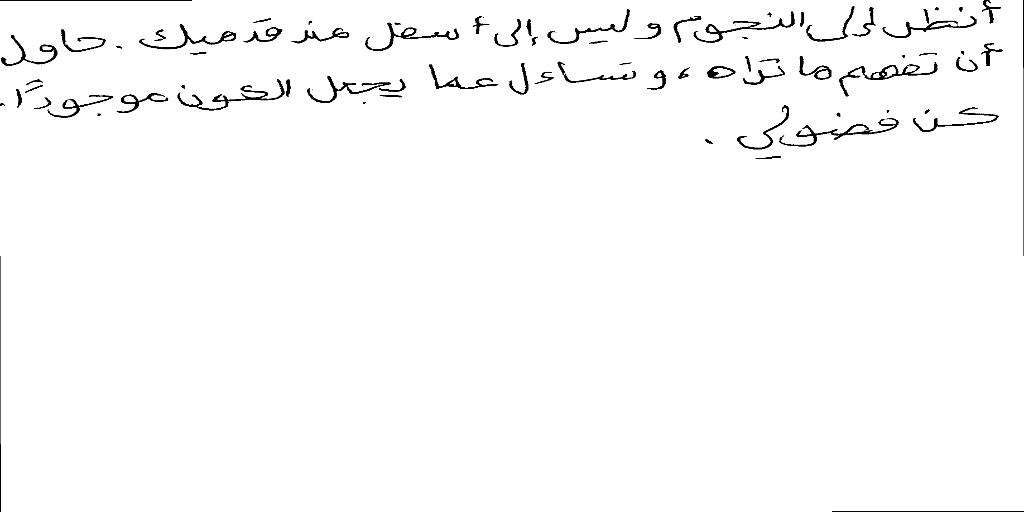 أنظر إلى النجوم وليس إلى أسفل عند قدميك . حاول
أن تفهم ما تراه ، وتساءل عما يجعل الكون موجودًا .
كن فضولي .